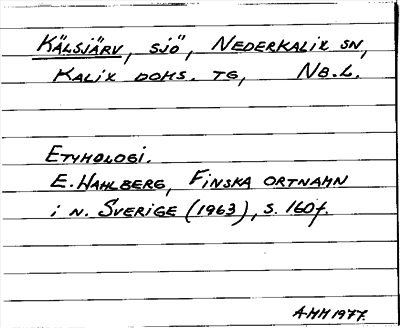 KÄLSJÄRV, SJÖ, NEDERKALIX SN,
KALIX DOMS. TG, NB.L.
ETYMOLOGI.
E. WAHLBERG, FINSKA ORTNAMN
i N. SVERIGE (1963), S. 160f.
AMM 1977.